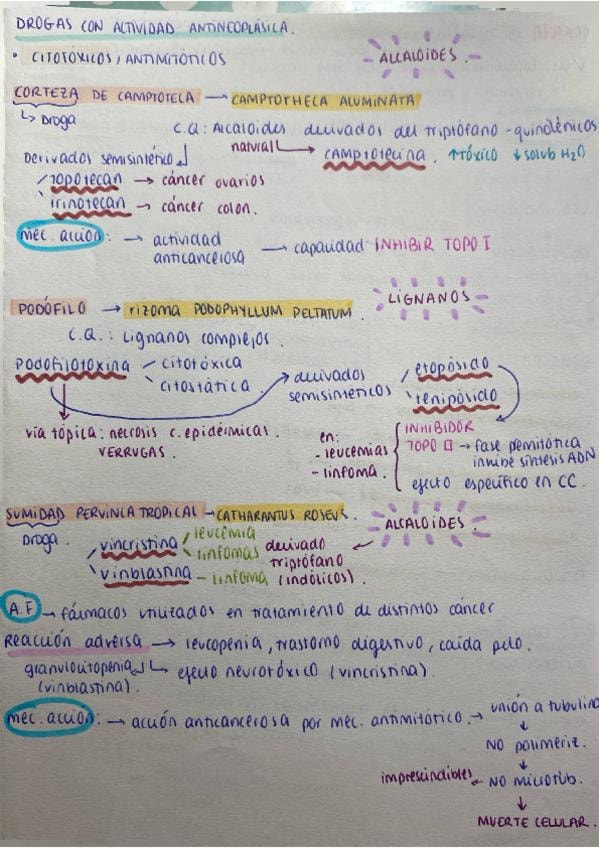 DROGAS CON ACTIVIDAD ANTINEOPLÁSICA.
• CITOTÓXICOS, ANTIMITÓTICOS
ALCALOIDES.
CORTEZA DE CAMPTOTECA → CAMPTOTHECA ALUMINATA
↳ Droga
C.Q: Alcaloides derivados del triptófano - quinolénicos
natural → CAMPTOTECINA. ↑TÓXICO ↓solub H2O
Derivados semisintético
topotecan → cáncer ovarios
irinotecan → cáncer colon.
mec. acción: → actividad anticancerosa → capacidad INHIBIR TOPO I
LIGNANOS
PODÓFILO → rizoma PODOPHYLLUM PELTATUM.
C.Q.: Lignanos complejos.
Podofilotoxina
citotóxica
citostática.
derivados semisintéticos
etopósido
tenipósido
vía tópica: necrosis c. epidérmicas.
VERRUGAS.
en:
- leucemias
- linfoma.
INHIBIDOR
TOPO II → fase premitótica
inhibe síntesis ADN
efecto específico en CC.
SUMIDAD PERVINCA TROPICAL → CATHARANTUS ROSEUS.
ALCALOIDES
Droga.
vincristina
leucemia
linfomas
vinblastina - linfoma
derivado
triptófano
(indólicos).
A.F → fármacos utilizados en tratamiento de distintos cáncer
Reacción adversa → leucopenia, trastorno digestivo, caída pelo.
granulocitopenia (vinblastina). ↳ efecto neurotóxico (vincristina).
mec. acción: → acción anticancerosa por mec. antimitótico. → unión a tubulina
↓
NO polimeriz.
↓
imprescindibles ← NO microtúb.
↓
MUERTE CELULAR.